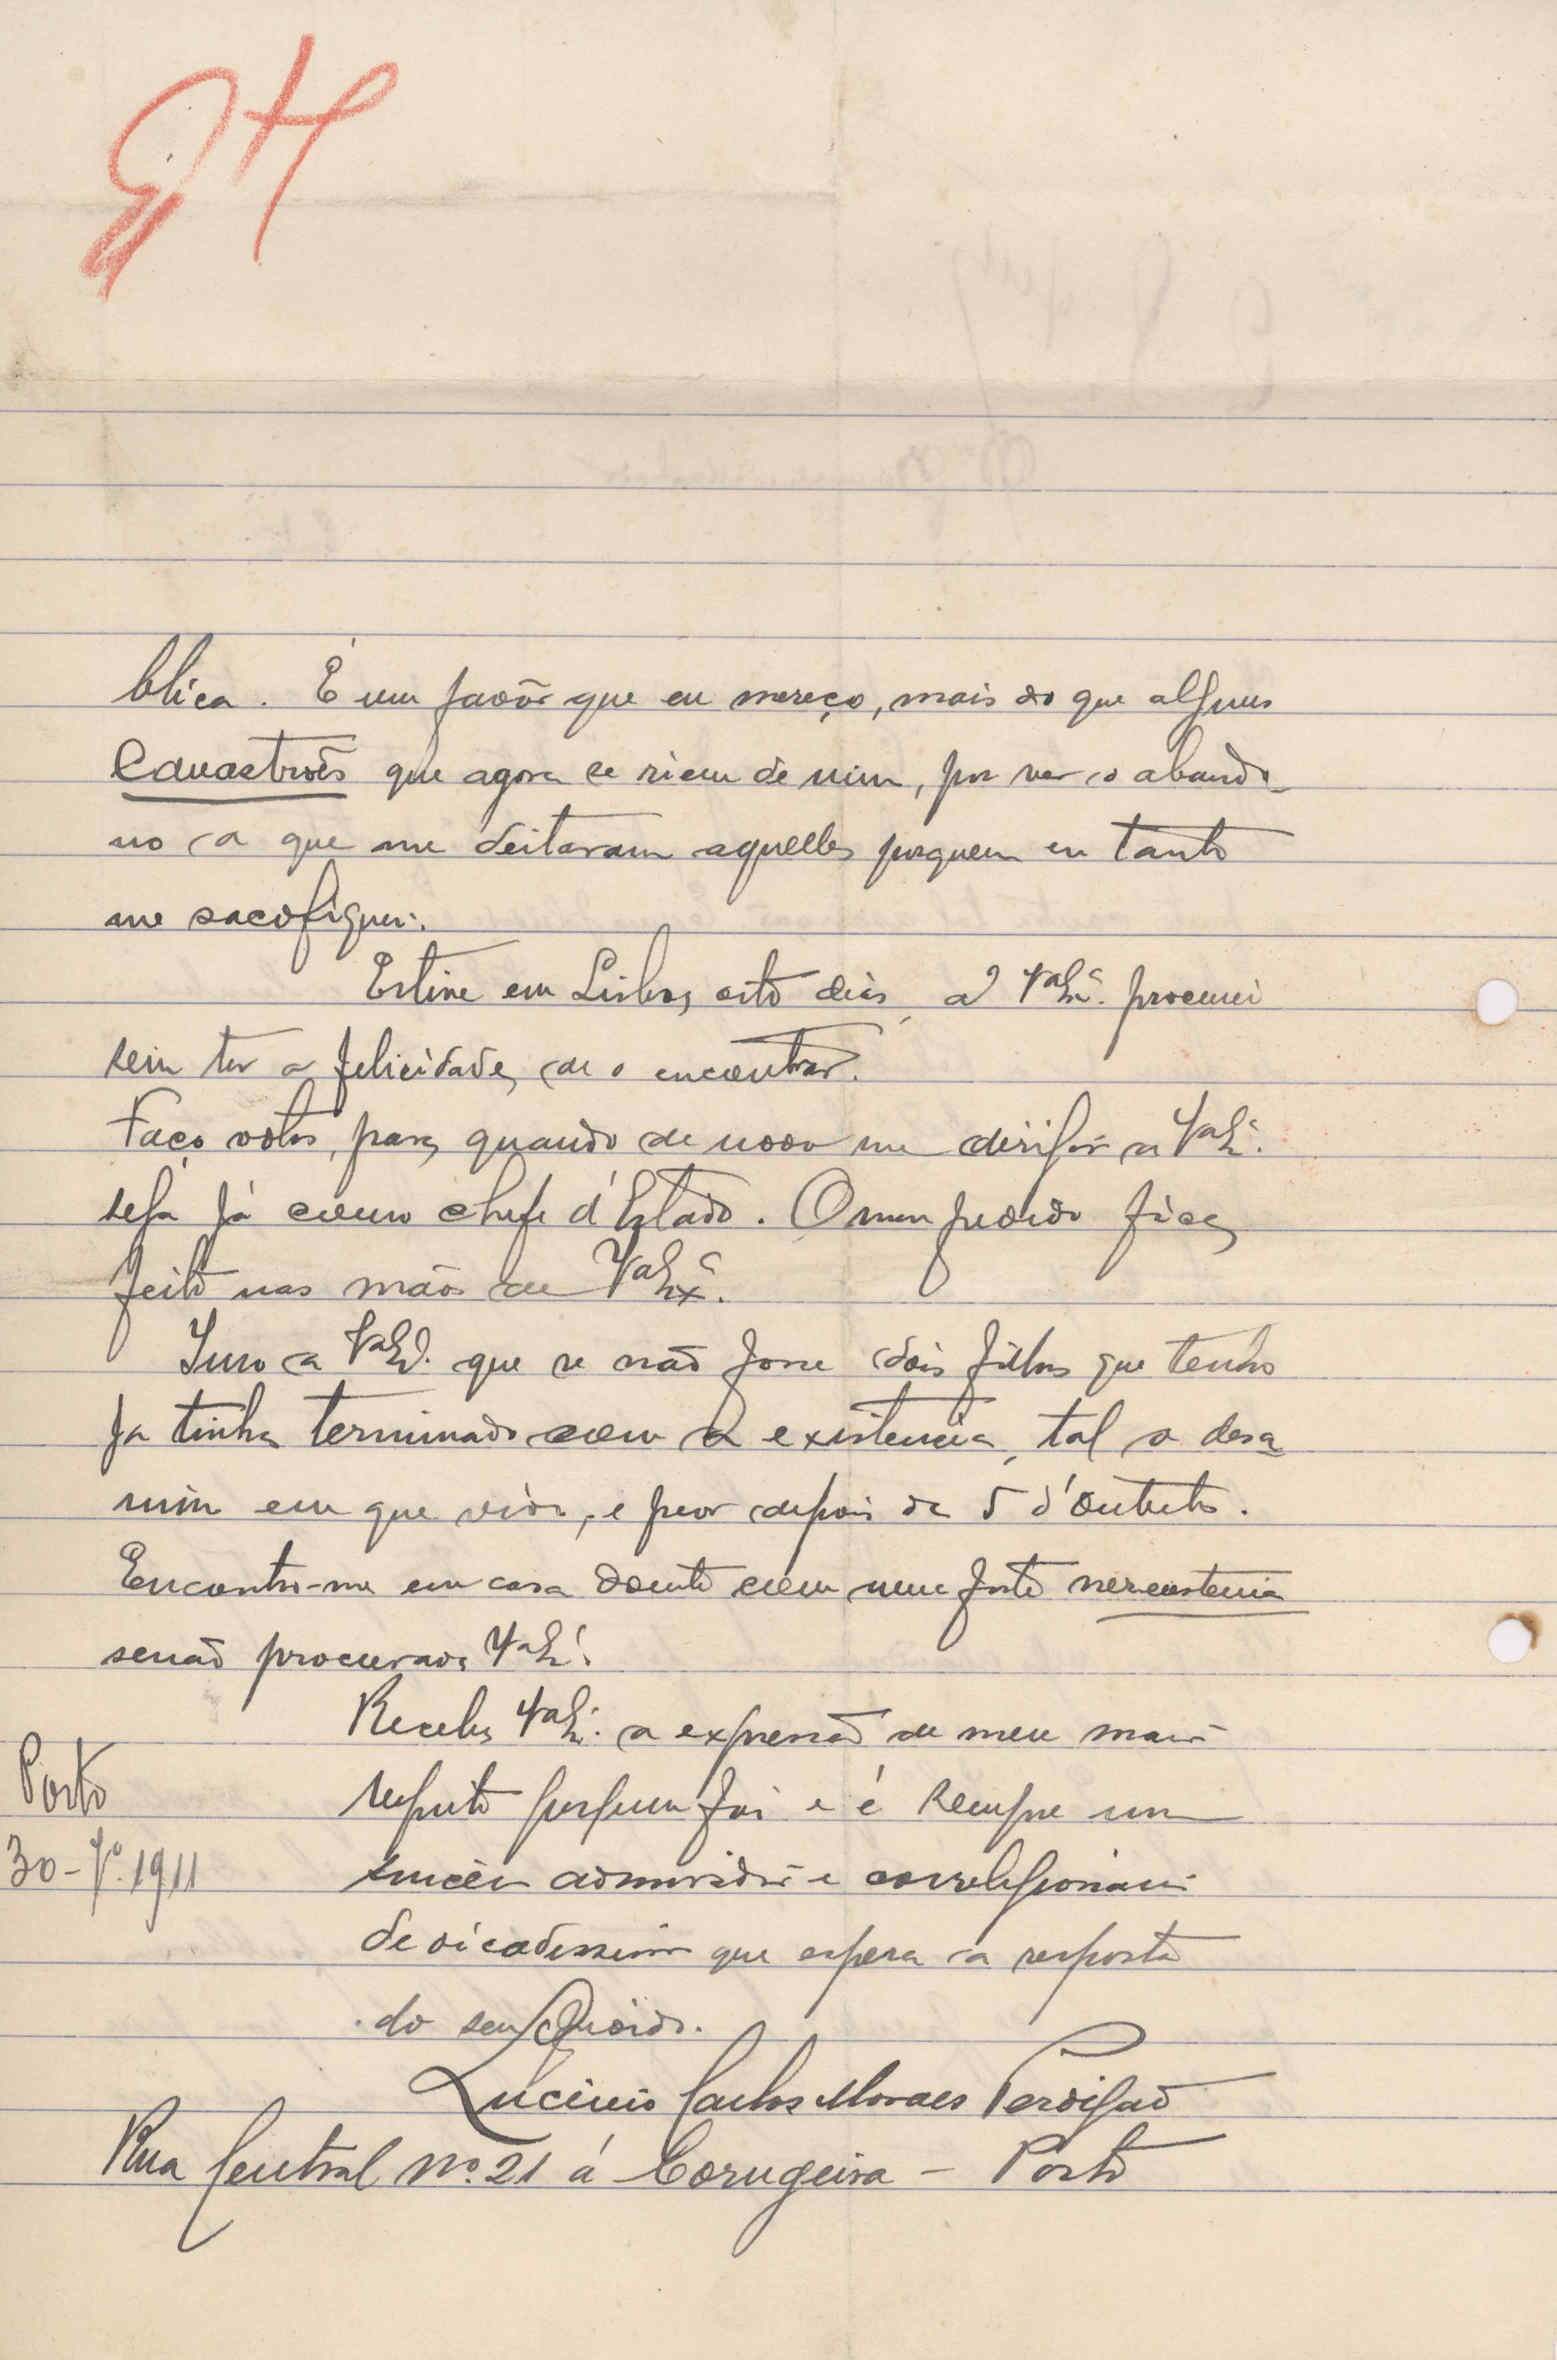 GH
blica. É um favôr que eu mereço, mais do que alguns
Canastrões que agora se riem de mim, por ver o abando-
no a que me deitaram aquelles porquem eu tanto
me sacrofiquei.
Estive em Lisboa, oito dias, a VaExcª. procurei
sem ter a felicidade, de o encontrar.
Faço votos, para, quando de novo me dirigir a VaExª.
seja já como chefe d'Estado. O meu pedido fica,
feito nas mãos de VaExª.
Juro a VaExª. que se não fosse dois filhos que tenho
ja tinha terminado com a existencia, tal o desa
nimo em que vivo, e peor depois de 5 d'Outubro.
Encontro-me em casa doente com uma forte nerastenia
senão procurava VaExª.
Receba VaExª. a expressão de meu maior
respeito porquem foi e é sempre um
sincero admirador e correlegionario
dedicadissimo que espera a resposta
do seu pedido.
Lucinio Carlos Moraes Perdigão
Rua Central Nº 21 á Corugeira – Porto
Porto
30-7º.1911